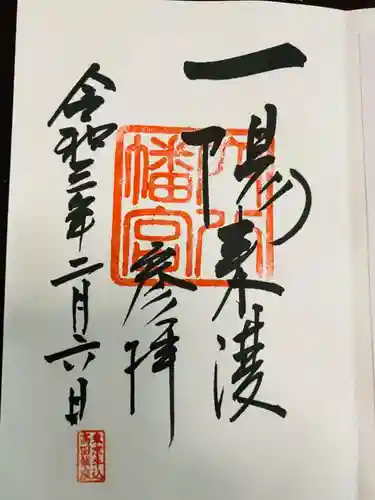 一陽来復
穴八幡宮
参拝
令和三年二月六日